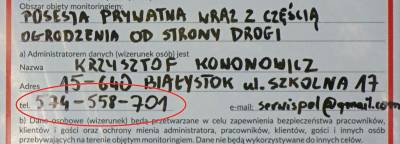 Obszar objęty monitoringiem:
POSESJA PRYWATNA WRAZ Z CZĘŚCIĄ
OGRODZENIA OD STRONY DROGI
a) Administratorem danych (wizerunek osób) jest
Nazwa KRZYSZTOF KONONOWICZ
Adres 15-640 BIAŁYSTOK ul. SZKOLNA 17
tel. 574-558-701 e-mail: serwispol@gmail.com
b) Dane osobowe (wizerunek) będą przetwarzane w celu zapewnienia bezpieczeństwa pracowników,
klientów i gości oraz ochrony mienia administratora, pracowników, klientów, gości i innych osób
przebywających na terenie objętym monitoringiem. Dane nie będą wykorzystywane do innych celów.